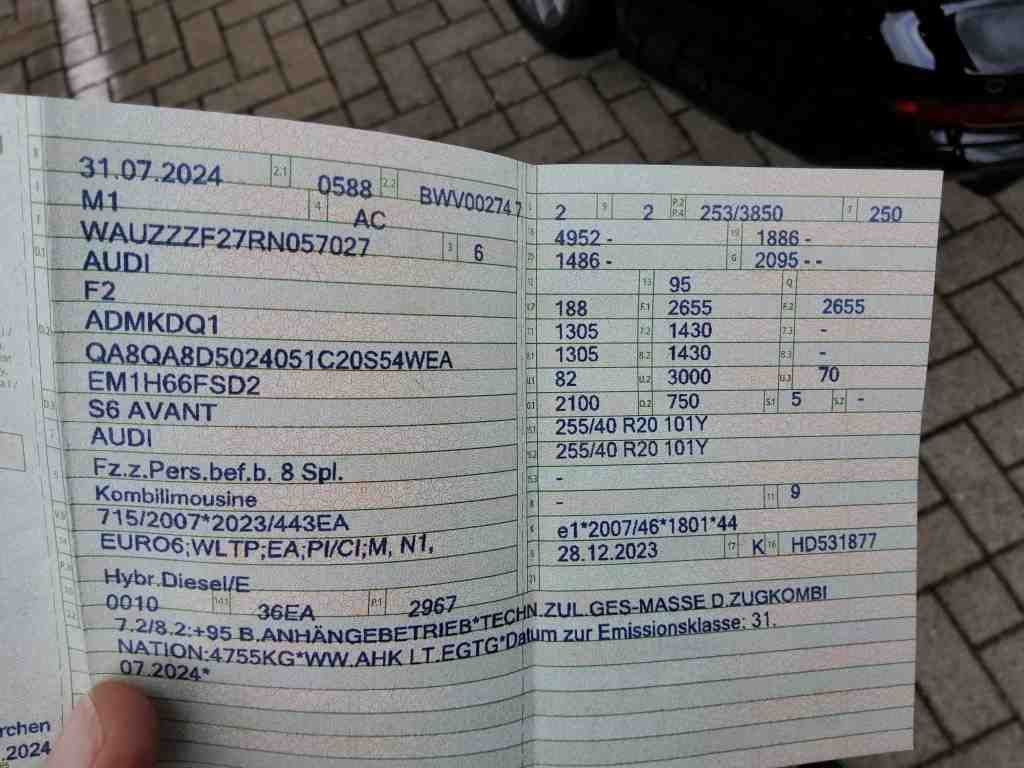 31.07.2024 2.1 0588 2.2 BWV002747
M1 4 AC
WAUZZZF27RN057027 3 6
AUDI
F2
ADMKDQ1
QA8QA8D5024051C20S54WEA
EM1H66FSD2
S6 AVANT
AUDI
Fz.z.Pers.bef.b. 8 Spl.
Kombilimousine
715/2007*2023/443EA
EURO6;WLTP;EA;PI/CI;M, N1,
Hybr.Diesel/E
0010 14.1 36EA P.1 2967
7.2/8.2:+95 B.ANHÄNGEBETRIEB*TECHN.ZUL.GES-MASSE D.ZUGKOMBI
NATION:4755KG*WW.AHK LT.EGTG*Datum zur Emissionsklasse: 31.
07.2024*
rchen
.2024
2 9 2 P.2 P.4 253/3850 T 250
4952 - 19 1886 -
1486 - G 2095 - -
13 95 Q
188 F.1 2655 F.2 2655
1305 7.2 1430 7.3 -
1305 8.2 1430 8.3 -
82 U.2 3000 U.3 70
2100 O.2 750 S.1 5 S.2 -
255/40 R20 101Y
255/40 R20 101Y
-
- 11 9
e1*2007/46*1801*44
28.12.2023 17 K 16 HD531877